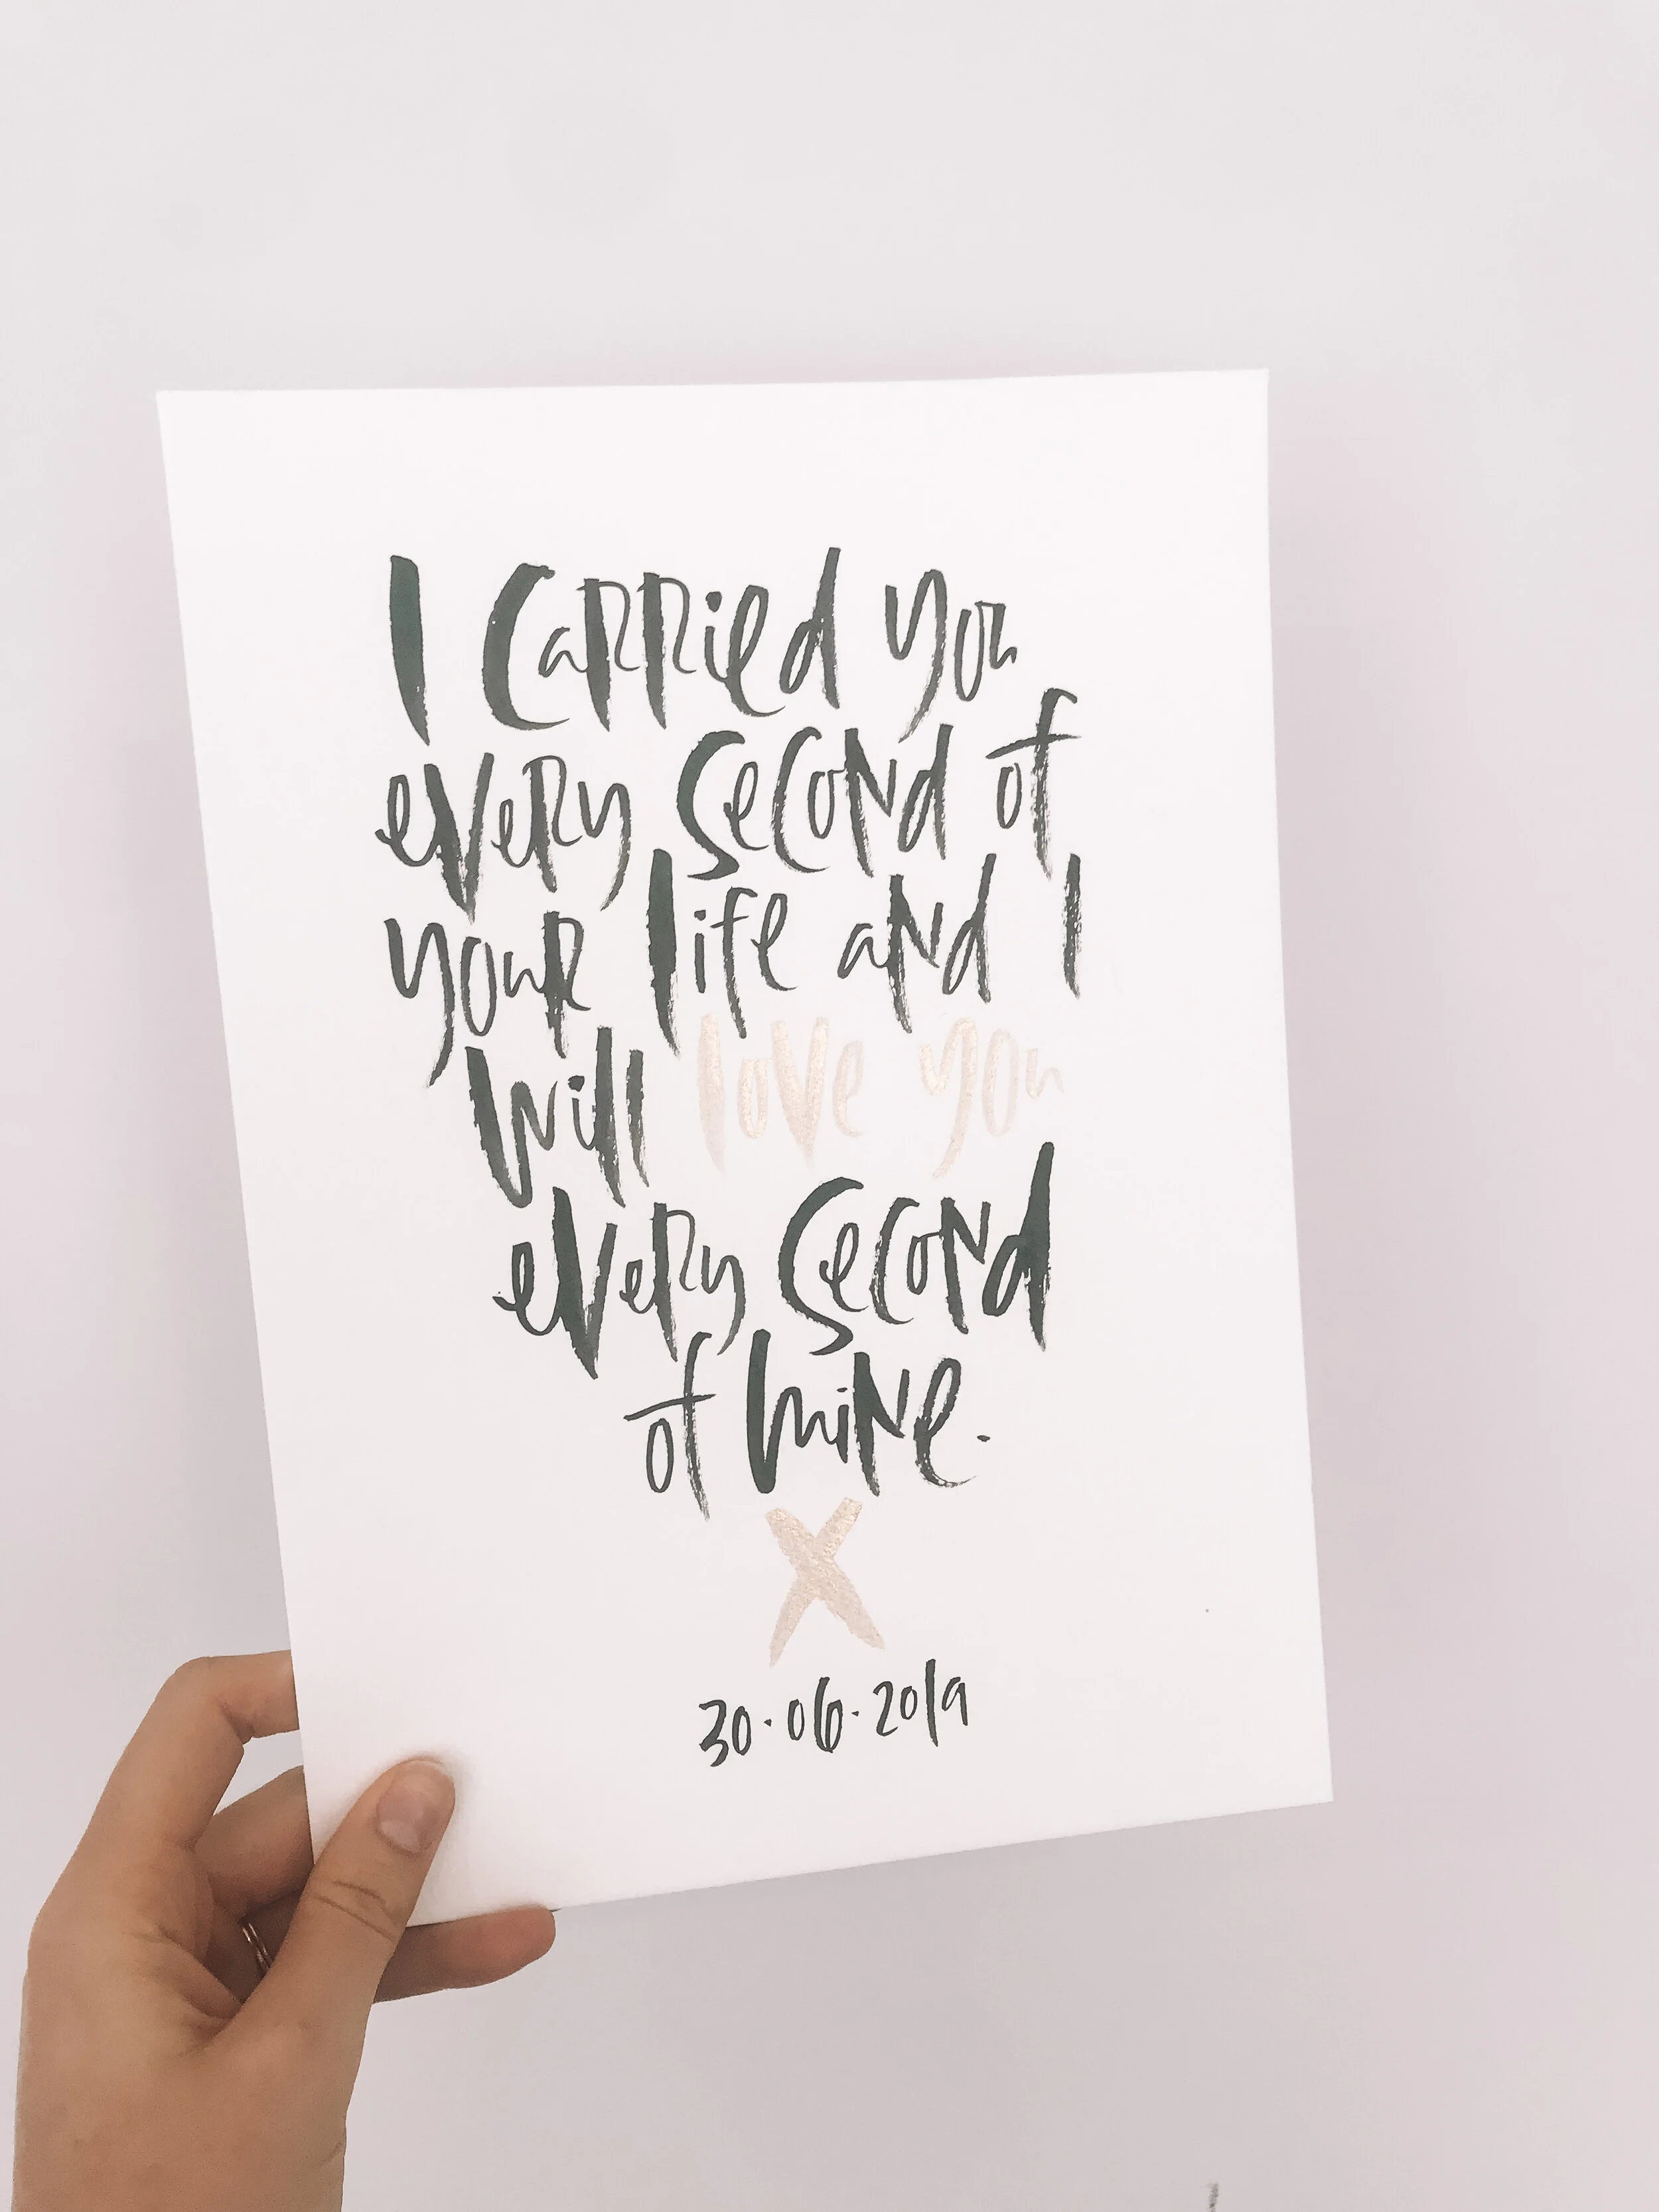 I carried you
every second of
your life and I
will love you
every second
of mine.
X
30.06.2019